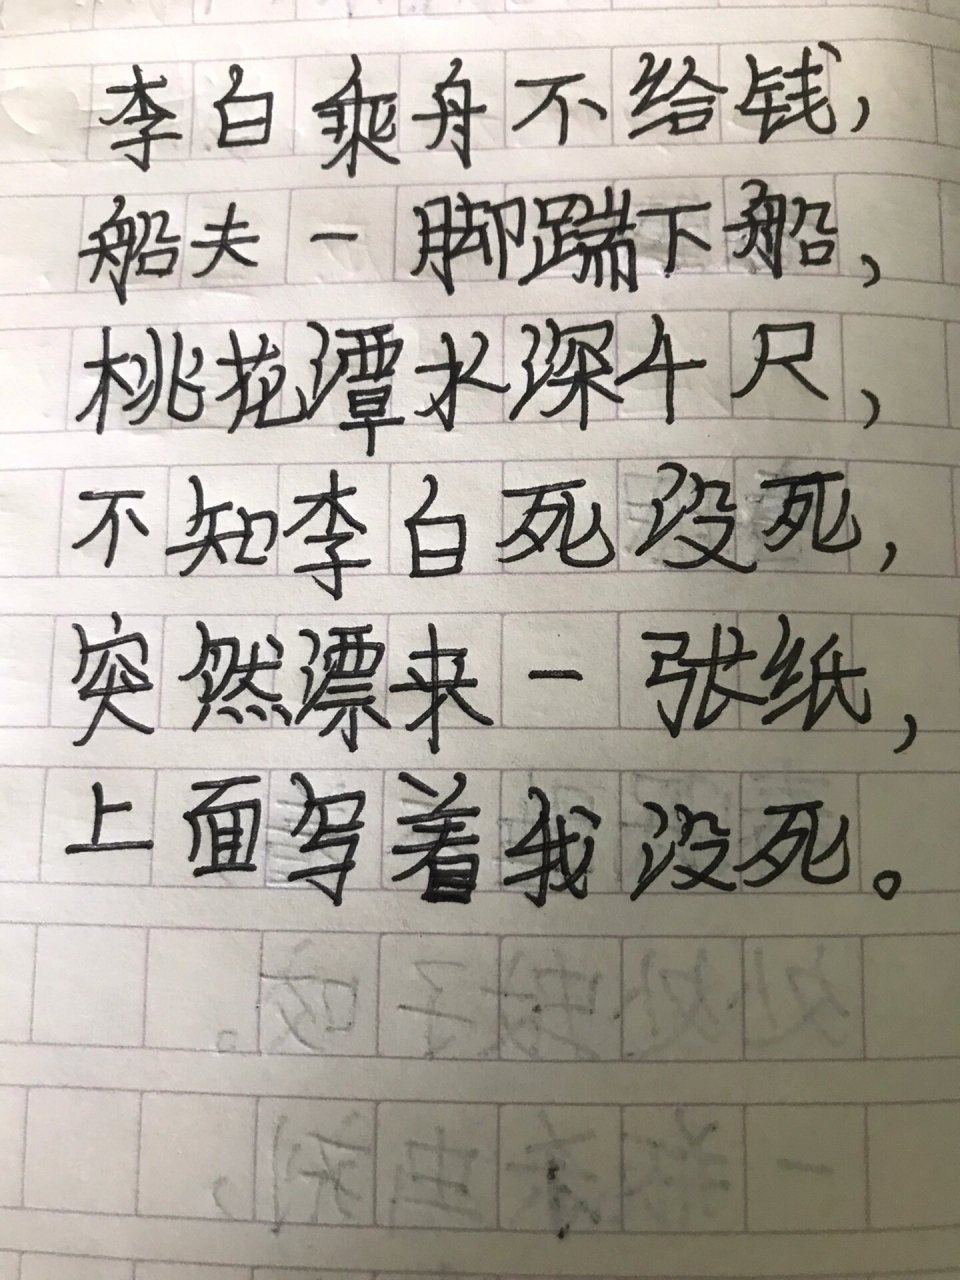 李白乘舟不给钱，
船夫一脚踹下船，
桃花潭水深千尺，
不知李白死没死，
突然漂来一张纸，
上面写着我没死。